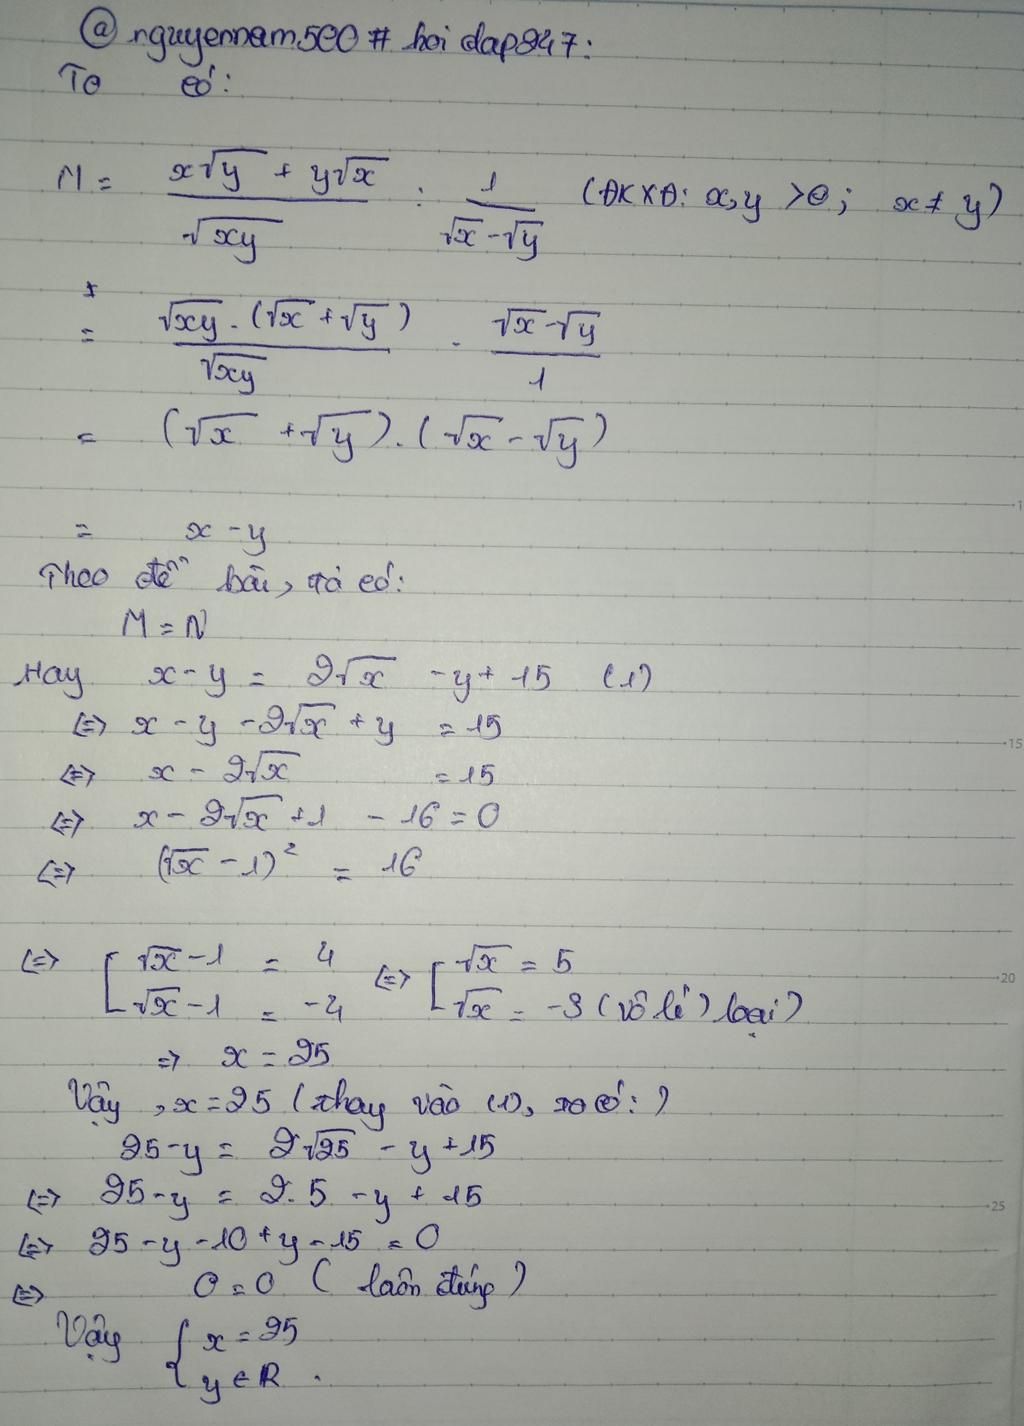 @nguyennam500 # hoidap247:
Ta có:
M = x√y + y√x / √xy : 1 / √x - √y (ĐKXĐ: x, y > 0; x ≠ y)
= √xy . (√x + √y) / √xy . √x - √y / 1
= (√x + √y) . (√x - √y)
= x - y
Theo đề bài, ta có:
M = N
Hay x - y = 2√x - y + 15 (1)
<=> x - y - 2√x + y = 15
<=> x - 2√x = 15
<=> x - 2√x + 1 - 16 = 0
<=> (√x - 1)² = 16
<=> [ √x - 1 = 4 <=> [ √x = 5
√x - 1 = -4 √x = -3 (vô lí) loại)
=> x = 25
Vậy, x = 25 (thay vào (1), ta có:)
25 - y = 2√25 - y + 15
<=> 25 - y = 2.5 - y + 15
<=> 25 - y - 10 + y - 15 = 0
<=> 0 = 0 (luôn đúng)
Vậy { x = 25
y ∈ R .
15
20
25